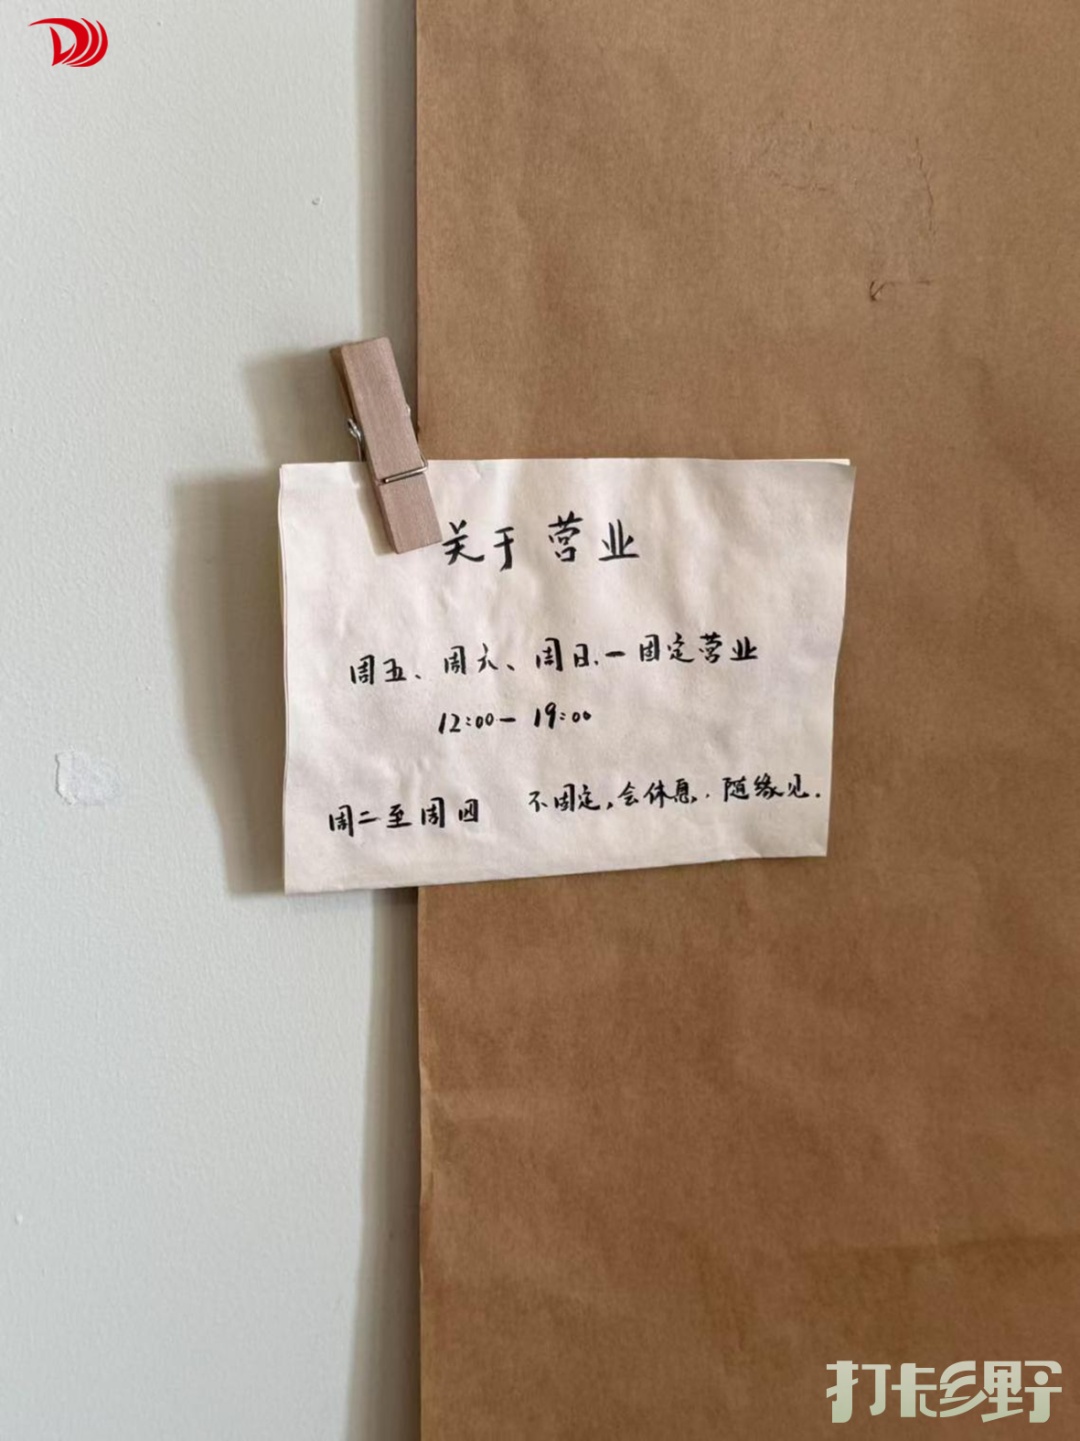 关于营业
周五、周六、周日.一固定营业
12:00—19:00
周二至周四 不固定,会休息.随缘见.
打卡乡野